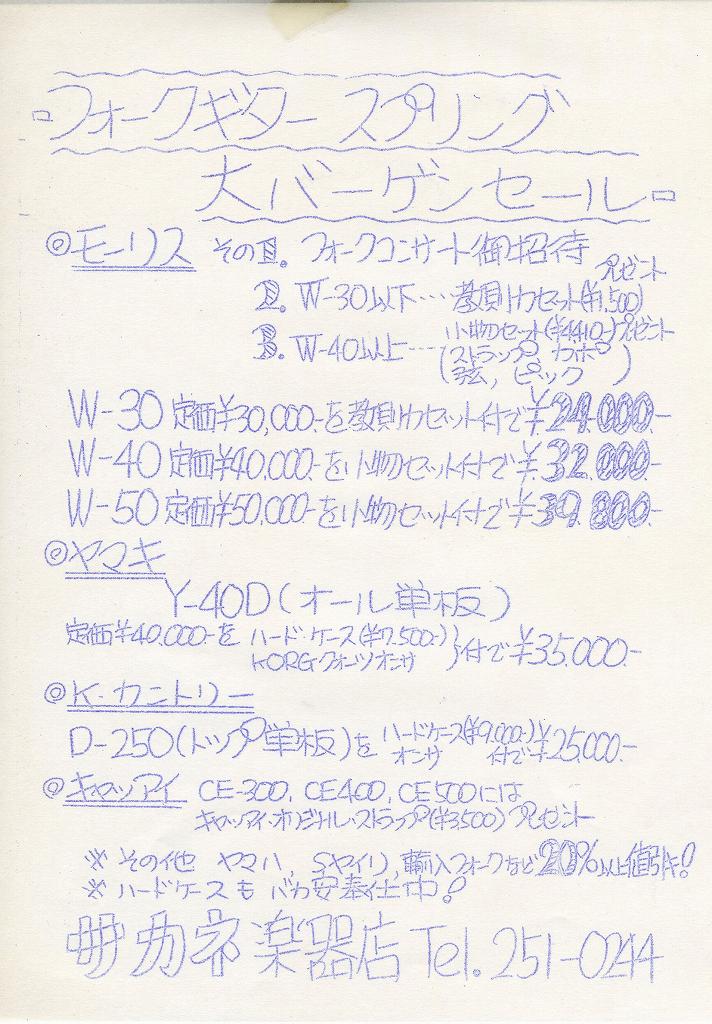 フォークギター スプリング
大バーゲンセール
◎モーリス その1. フォークコンサート御招待
2. W-30以下…教則カセット(¥1,500)プレゼント
3. W-40以上…小物セット(¥4410-)プレゼント
(ストラップ, カポ
弦, ピック)
W-30 定価¥30,000-を教則カセット付で¥24.000-
W-40 定価¥40,000-を小物セット付で¥32.000-
W-50 定価¥50,000-を小物セット付で¥39.800-
◎ヤマキ
Y-40D(オール単板)
定価¥40,000-を ハード・ケース(¥7,500-)
KORG・クォーツオンサ}付で¥35.000-
◎K・カントリー
D-250(トップ単板)を ハードケース(¥9,000-)
オンサ 付で¥25.000-
◎キャッツアイ CE-300, CE400, CE500には
キャッツアイ・オリジナル・ストラップ(¥3500)プレゼント
※ その他 ヤマハ, Sヤイリ, 輸入フォークなど20%以上値引き!
※ ハードケースも バカ安奉仕中!
サカネ楽器店 Tel. 251-0244